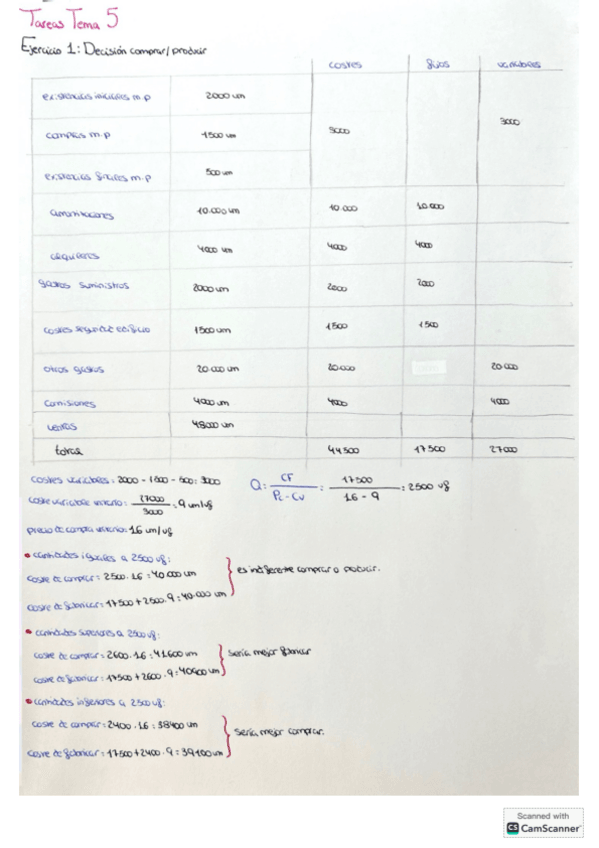 Tareas Tema 5
Ejercicio 1: Decisión comprar/producir
costes fijos variables
existencias iniciales m.p 2000 um
compras m.p 1500 um 3000 3000
existencias finales m.p 500 um
amortizaciones 10.000 um 10.000 10.000
alquileres 4000 um 4000 4000
gastos suministros 2000 um 2000 2000
costes seguridad edificio 1500 um 1500 1500
otros gastos 20.000 um 20.000 20.000
comisiones 4000 um 4000 4000
ventas 48000 um
total 44500 17500 27000
costes variables: 2000 - 1500 - 500: 3000
coste variable unitario: 27000 / 3000 = 9 um/uf
Q = CF / Pc - Cv : 17500 / 16 - 9 : 2500 uf
precio de compra unitario: 16 um/uf
• cantidades iguales a 2500 uf:
coste de comprar: 2500 · 16 = 40.000 um
coste de fabricar: 17500 + 2500 · 9 = 40.000 um
es indiferente comprar o producir.
• cantidades superiores a 2500 uf:
coste de comprar: 2600 · 16 = 41600 um
coste de fabricar: 17500 + 2600 · 9 = 40900 um
sería mejor fabricar
• cantidades inferiores a 2500 uf:
coste de comprar: 2400 · 16 = 38400 um
coste de fabricar: 17500 + 2400 · 9 = 39100 um
sería mejor comprar.
Scanned with
CS CamScanner